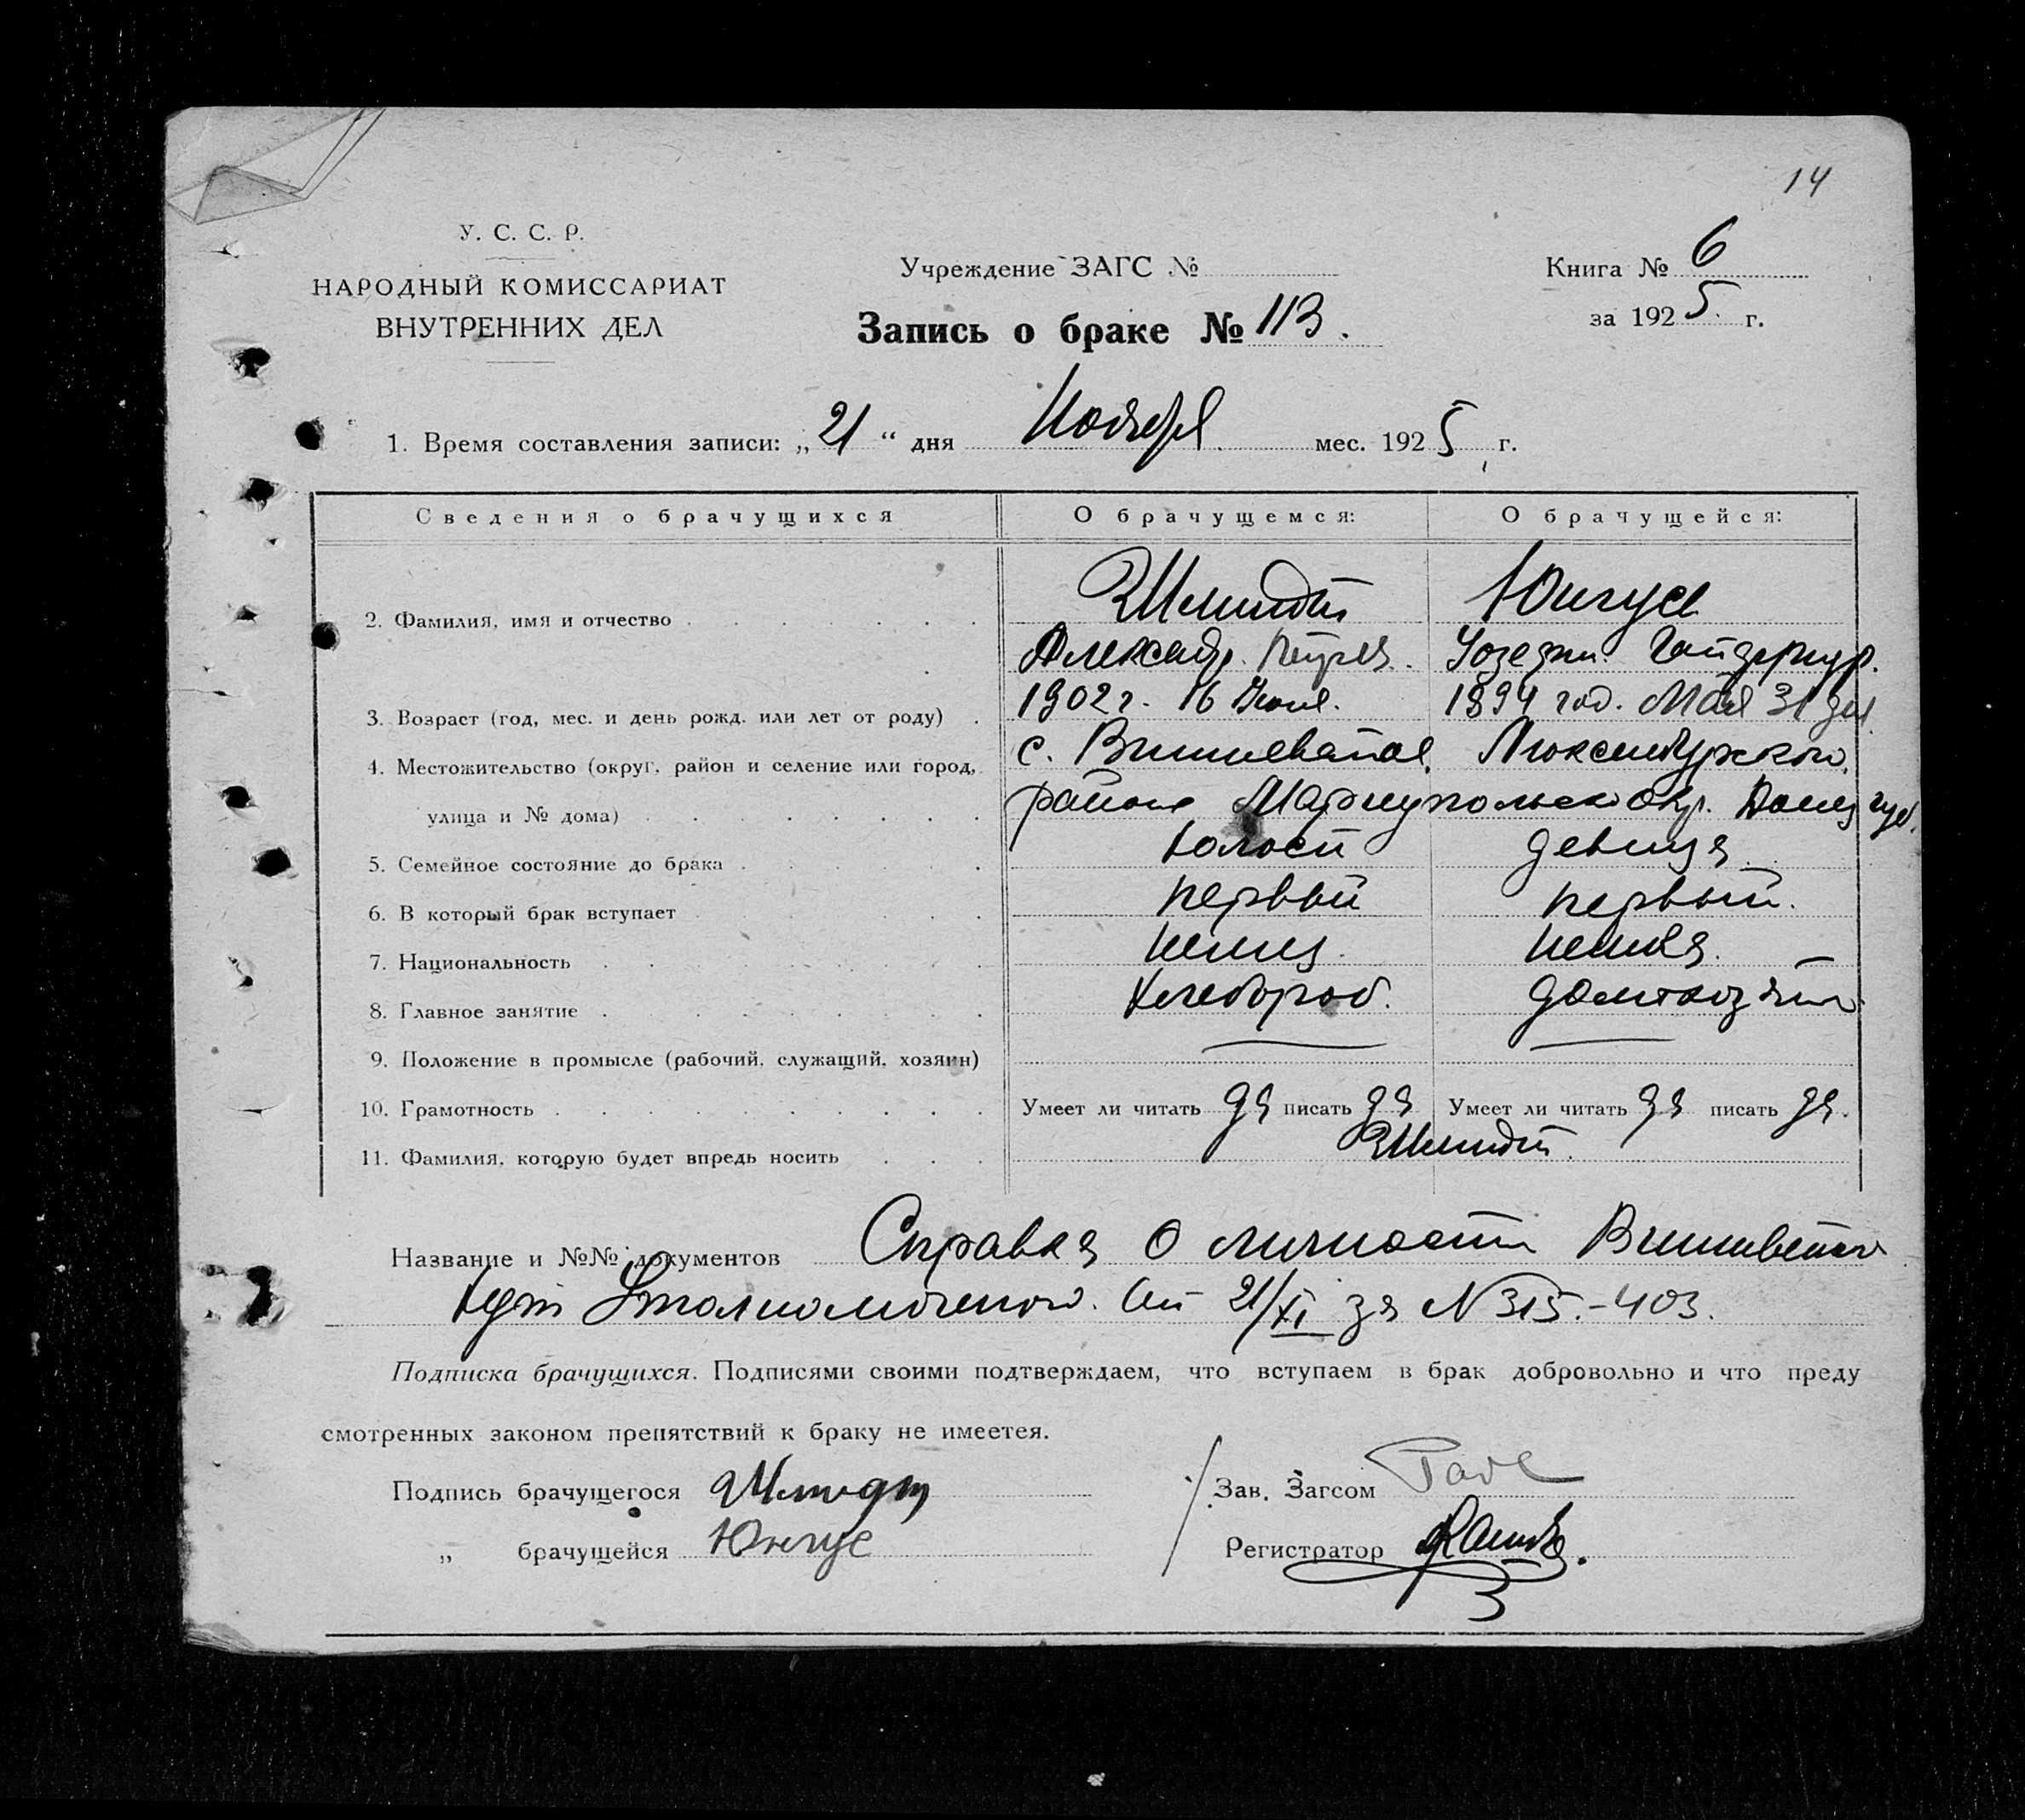 14
У. С. С. Р.
НАРОДНЫЙ КОМИССАРИАТ
ВНУТРЕННИХ ДЕЛ
Учреждение ЗАГС №
Запись о браке № 113.
Книга № 6
за 1925. г.
1. Время составления записи: „21“ дня Ноября мес. 1925 г.
Сведения о брачущихся О брачущемся: О брачущейся:
2. Фамилия, имя и отчество Шмидт Юнгус
Александр. Петров.
3. Возраст (год, мес. и день рожд. или лет от роду) 1902 г. 16 1894 год. Мая 31 дня
4. Местожительство (округ, район и селение или город, с. Люксембургского
улица и № дома) района Мариупольск окр. Донец губ.
5. Семейное состояние до брака холост девица
6. В который брак вступает первый первый.
7. Национальность немец. немка.
8. Главное занятие Хлебороб.
9. Положение в промысле (рабочий, служащий, хозяин)
10. Грамотность Умеет ли читать да писать да Умеет ли читать да писать да.
11. Фамилия, которую будет впредь носить Шмидт.
Название и №№ документов Справка о личности
От 21/XI за N 315.-403.
Подписка брачущихся. Подписями своими подтверждаем, что вступаем в брак добровольно и что преду
смотренных законом препятствий к браку не имеется.
Подпись брачущегося Шмидт
Зав. Загсом
„ брачущейся Юнгус
Регистратор